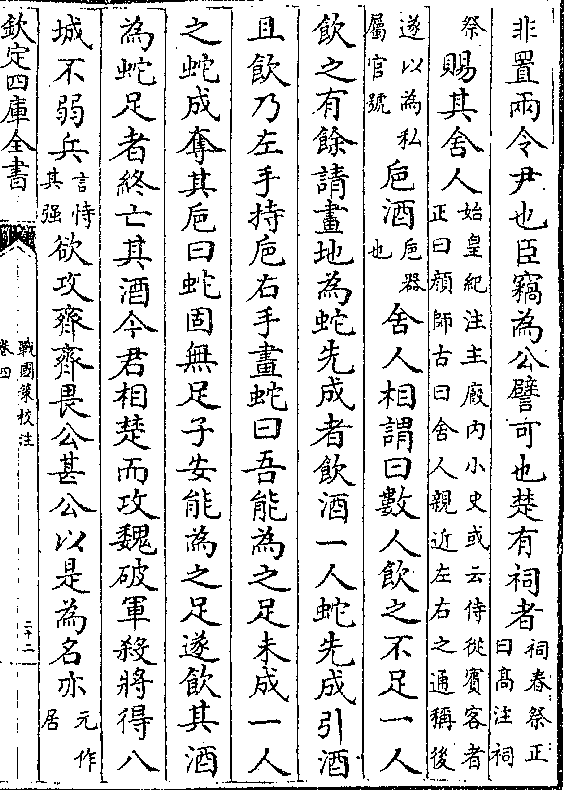 非置兩令尹也臣竊為公譬可也楚有祠者祠春祭正曰高注祠
祭賜其舍人始皇紀注主廐內小史或云侍從賓客者正曰顔師古曰舍人親近左右之通稱後
遂以為私屬官號巵酒巵器也舍人相謂曰數人飲之不足一人
飲之有餘請畫地為蛇先成者飲酒一人蛇先成引酒
且飲乃左手持巵右手畫蛇曰吾能為之足未成一人
之蛇成奪其巵曰蛇固無足子安能為之足遂飲其酒
為蛇足者終亡其酒今君相楚而攻魏破軍殺將得八
城不弱兵言恃其强欲攻齊齊畏公甚公以是為名亦元作居
欽定四庫全書
戰國策校注
卷四
二十二